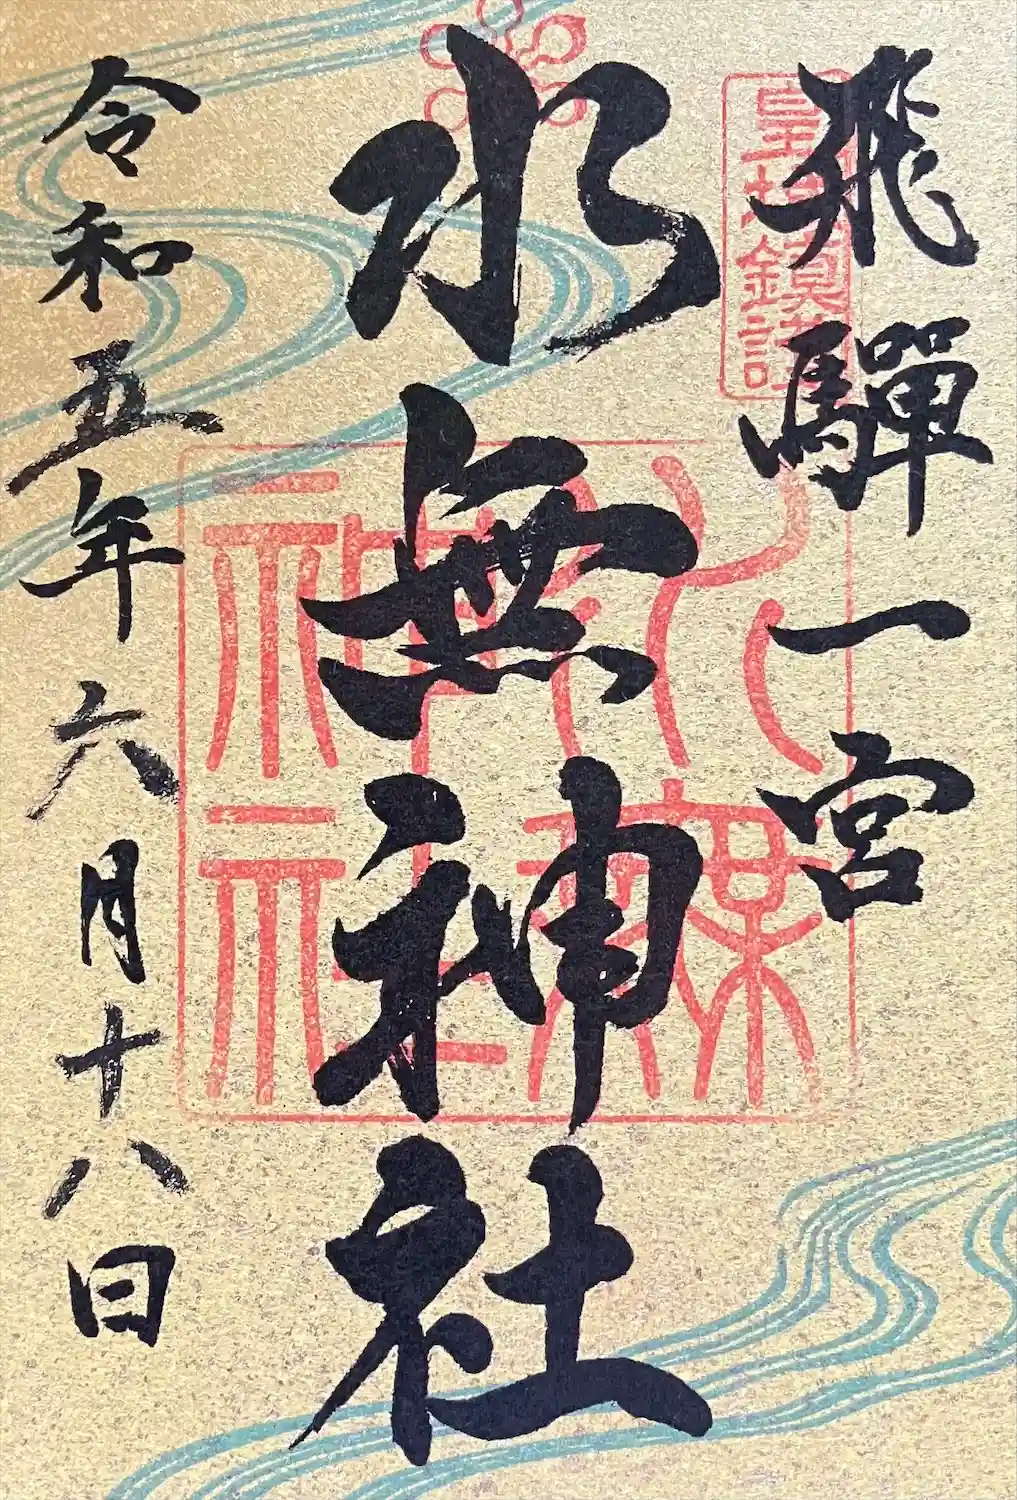 飛驒一宮
水無神社
令和五年六月十八日
水無神社